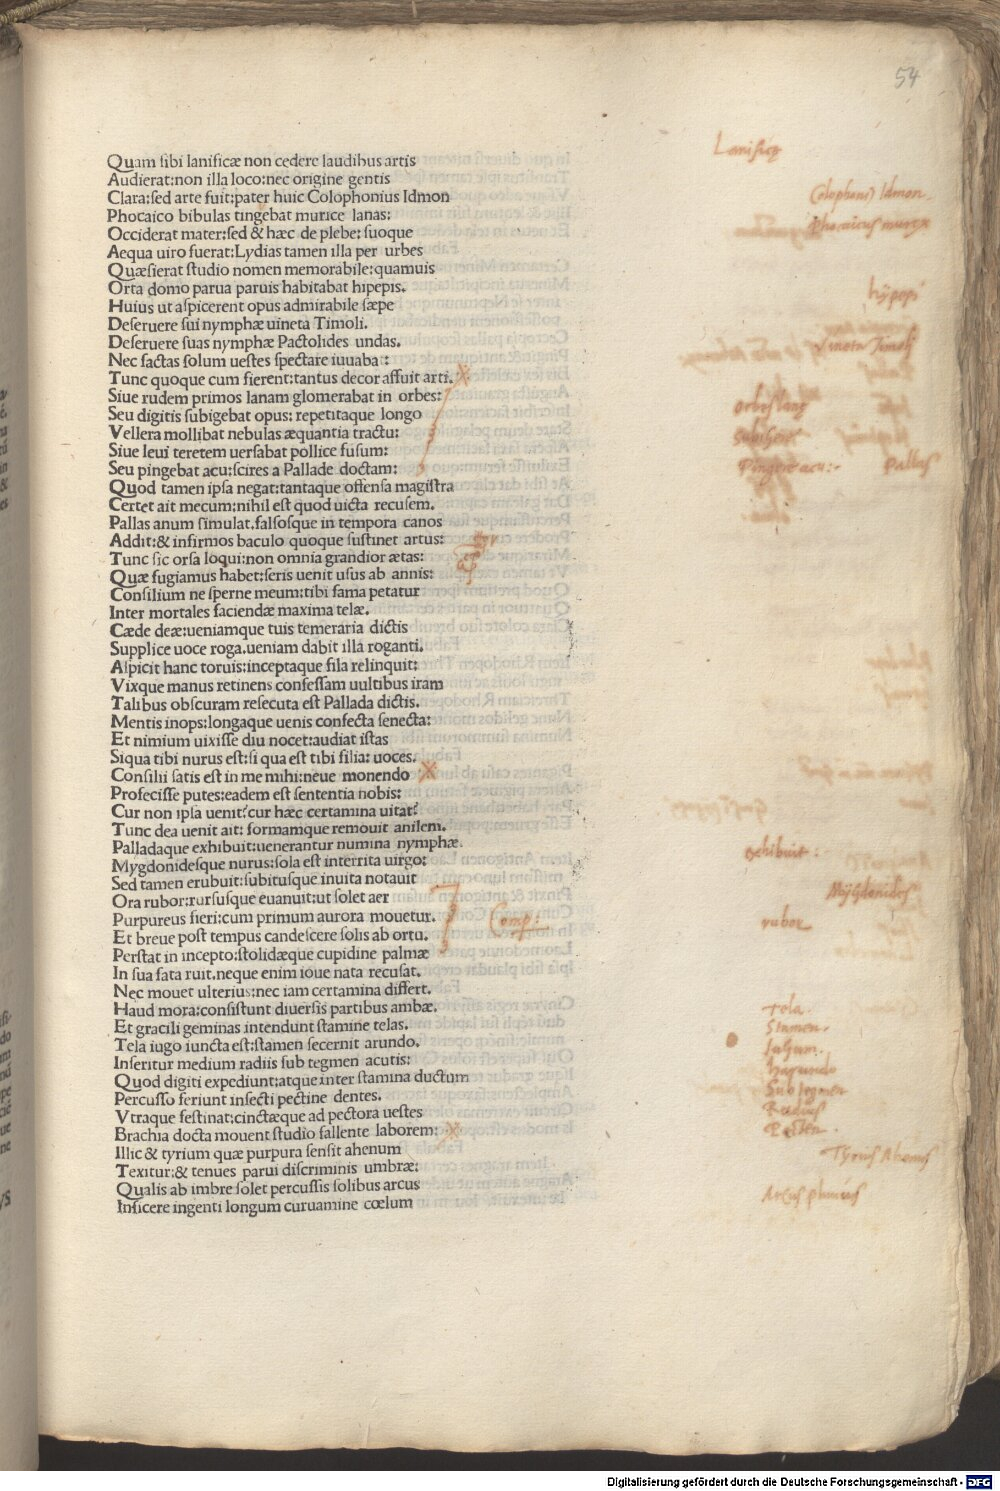 54
Quam sibi lanificæ non cedere laudibus artis
Audierat:non illa loco:nec origine gentis
Clara:sed arte fuit:pater huic Colophonius Idmon
Phocaico bibulas tingebat murice lanas:
Occiderat mater:sed & hæc de plebe: suoque
Aequa uiro fuerat:Lydias tamen illa per urbes
Quæsierat studio nomen memorabile:quamuis
Orta domo parua paruis habitabat hipepis.
Huius ut aspicerent opus admirabile sæpe
Deseruere sui nymphæ uineta Timoli.
Deseruere suas nymphæ Pactolides undas.
Nec factas solum uestes spectare iuuabat:
Tunc quoque cum fierent:tantus decor affuit arti.
Siue rudem primos lanam glomerabat in orbes:
Seu digitis subigebat opus: repetitaque longo
Vellera mollibat nebulas æquantia tractu:
Siue leui teretem uersabat pollice fusum:
Seu pingebat acu:scires a Pallade doctam:
Quod tamen ipsa negat:tantaque offensa magistra
Certet ait mecum:nihil est quod uicta recusem.
Pallas anum simulat.falsosque in tempora canos
Addit:& infirmos baculo quoque sustinet artus:
Tunc sic orsa loqui:non omnia grandior ætas:
Quæ fugiamus habet:seris uenit usus ab annis:
Consilium ne sperne meum:tibi fama petatur
Inter mortales faciendæ maxima telæ.
Cæde deæ:ueniamque tuis temeraria dictis
Supplice uoce roga.ueniam dabit illa roganti.
Aspicit hanc toruis:inceptaque fila relinquit:
Vixque manus retinens confessam uultibus iram
Talibus obscuram resecuta est Pallada dictis.
Mentis inops:longaque uenis confecta senecta:
Et nimium uixisse diu nocet:audiat istas
Siqua tibi nurus est:si qua est tibi filia: uoces.
Consilii satis est in me mihi:neue monendo
Profecisse putes:eadem est sententia nobis:
Cur non ipsa uenit?cur hæc certamina uitat?
Tunc dea uenit ait: formamque remouit anilem.
Palladaque exhibuit:uenerantur numina nymphæ.
Mygdonidesque nurus:sola est interrita uirgo:
Sed tamen erubuit:subitusque inuita notauit
Ora rubor:rursusque euanuit:ut solet aer
Purpureus fieri:cum primum aurora mouetur.
Et breue post tempus candescere solis ab ortu.
Perstat in incepto:stolidæque cupidine palmæ
In sua fata ruit.neque enim ioue nata recusat.
Nec mouet ulterius:nec iam certamina differt.
Haud mora:consistunt diuersis partibus ambæ.
Et gracili geminas intendunt stamine telas.
Tela iugo iuncta est:stamen secernit arundo.
Inseritur medium radiis sub tegmen acutis:
Quod digiti expediunt:atque inter stamina ductum
Percusso feriunt insecti pectine dentes.
Vtraque festinat:cinctæque ad pectora uestes
Brachia docta mouent studio fallente laborem:
Illic & tyrium quæ purpura sensit ahenum
Texitur:& tenues parui discriminis umbræ:
Qualis ab imbre solet percussis solibus arcus
Inficere ingenti longum curuamine cœlum
Lanificę
Colophoni9 Idmon
Phocaicus murex
hypepi
Vineta Timoli
Orbes lanę
Subigere
Pingere acu:
Pallas
exhibuit:
Mygdonides
Comp:
rubor
Tela
Stamen
Iugum
Harundo
Subtegmen
Radius
Pecten
Tyrius Ahenus
Arcus pluuius
Digitalisierung gefördert durch die Deutsche Forschungsgemeinschaft - DFG